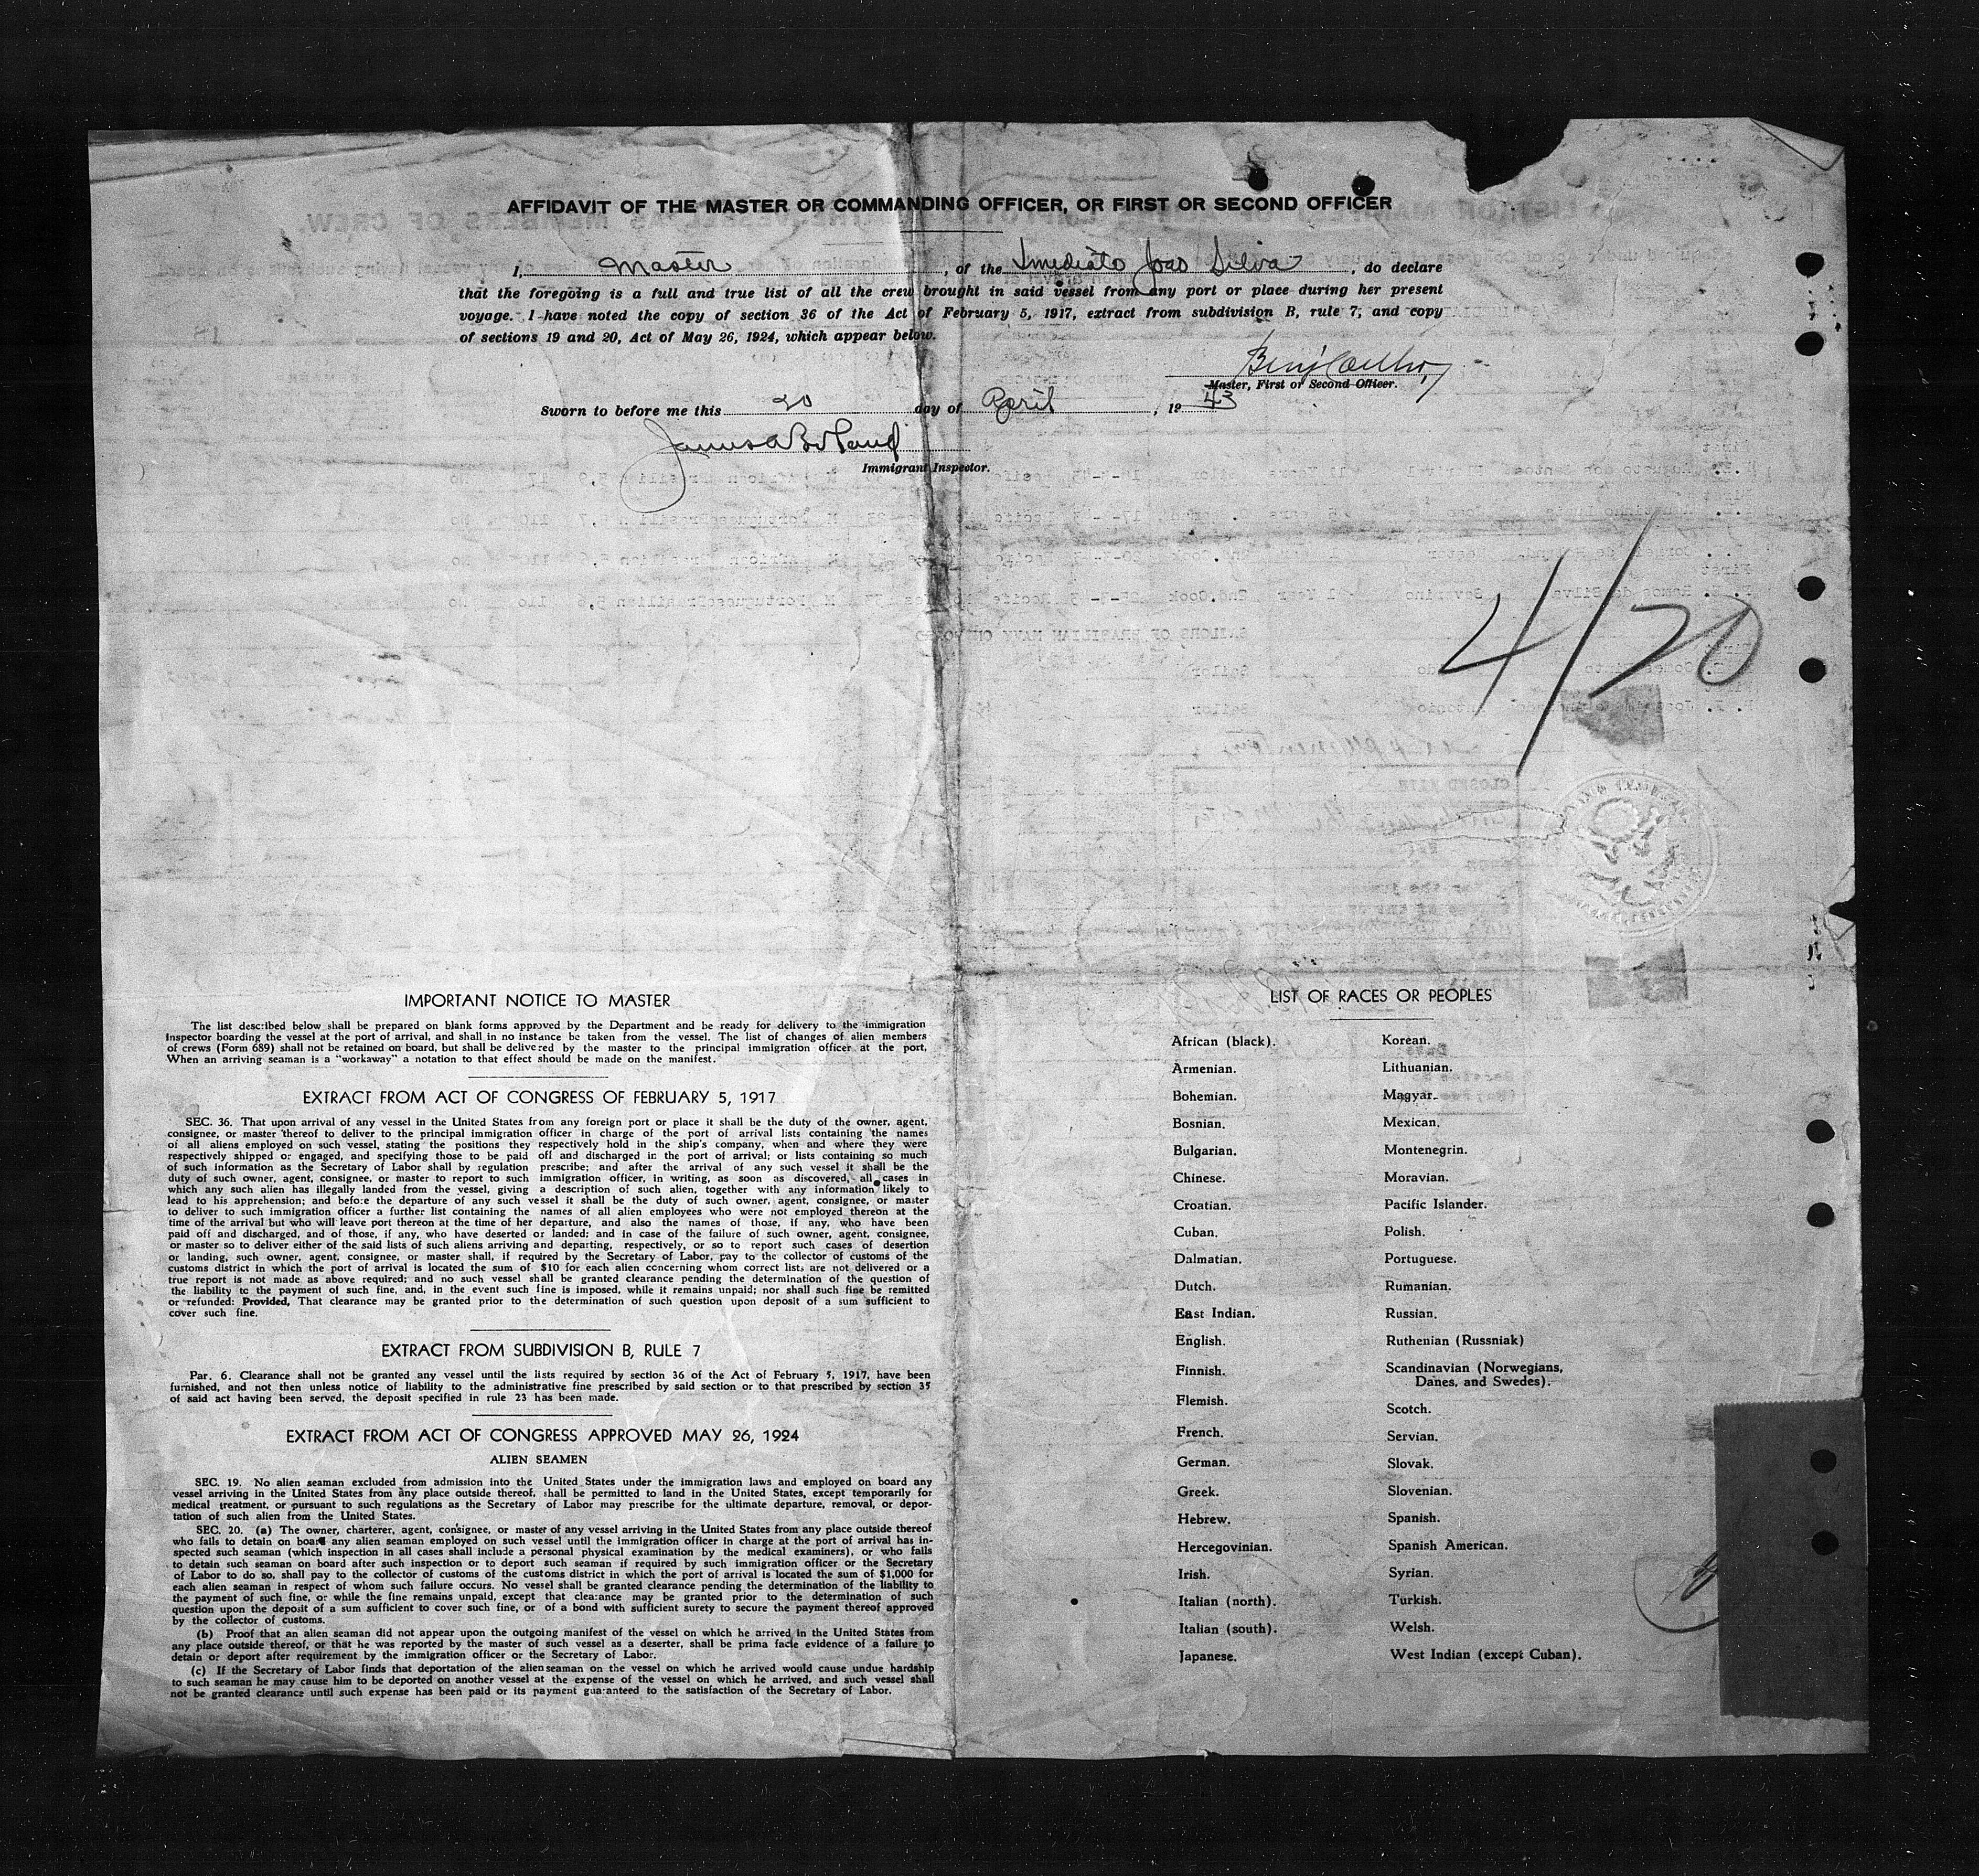 AFFIDAVIT OF THE MASTER OR COMMANDING OFFICER, OR FIRST OR SECOND OFFICER
I, Master, of the Imediato Joao Silva, do declare
that the foregoing is a full and true list of all the crew brought in said vessel from any port or place during her present
voyage. I have noted the copy of section 36 of the Act of February 5, 1917, extract from subdivision B, rule 7, and copy
of sections 19 and 20, Act of May 26, 1924, which appear below.
Benj Coelho
Master, First or Second Officer.
Sworn to before me this 20 day of April, 1943
James A
Immigrant Inspector.
4/20
IMPORTANT NOTICE TO MASTER
The list described below shall be prepared on blank forms approved by the Department and be ready for delivery to the immigration
inspector boarding the vessel at the port of arrival, and shall in no instance be taken from the vessel. The list of changes of alien members
of crews (Form 689) shall not be retained on board, but shall be delivered by the master to the principal immigration officer at the port.
When an arriving seaman is a "workaway" a notation to that effect should be made on the manifest.
EXTRACT FROM ACT OF CONGRESS OF FEBRUARY 5, 1917
SEC. 36. That upon arrival of any vessel in the United States from any foreign port or place it shall be the duty of the owner, agent,
consignee, or master thereof to deliver to the principal immigration officer in charge of the port of arrival lists containing the names
of all aliens employed on such vessel, stating the positions they respectively hold in the ship's company, when and where they were
respectively shipped or engaged, and specifying those to be paid off and discharged in the port of arrival; or lists containing so much
of such information as the Secretary of Labor shall by regulation prescribe; and after the arrival of any such vessel it shall be the
duty of such owner, agent, consignee, or master to report to such immigration officer, in writing, as soon as discovered, all cases in
which any such alien has illegally landed from the vessel, giving a description of such alien, together with any information likely to
lead to his apprehension; and before the departure of any such vessel it shall be the duty of such owner, agent, consignee, or master
to deliver to such immigration officer a further list containing the names of all alien employees who were not employed thereon at the
time of the arrival but who will leave port thereon at the time of her departure, and also the names of those, if any, who have been
paid off and discharged, and of those, if any, who have deserted or landed; and in case of the failure of such owner, agent, consignee,
or master so to deliver either of the said lists of such aliens arriving and departing, respectively, or so to report such cases of desertion
or landing, such owner, agent, consignee, or master shall, if required by the Secretary of Labor, pay to the collector of customs of the
customs district in which the port of arrival is located the sum of $10 for each alien concerning whom correct lists are not delivered or a
true report is not made as above required; and no such vessel shall be granted clearance pending the determination of the question of
the liability to the payment of such fine, and, in the event such fine is imposed, while it remains unpaid; nor shall such fine be remitted
or refunded: Provided, That clearance may be granted prior to the determination of such question upon deposit of a sum sufficient to
cover such fine.
EXTRACT FROM SUBDIVISION B, RULE 7
Par. 6. Clearance shall not be granted any vessel until the lists required by section 36 of the Act of February 5, 1917, have been
furnished, and not then unless notice of liability to the administrative fine prescribed by said section or to that prescribed by section 35
of said act having been served, the deposit specified in rule 23 has been made.
EXTRACT FROM ACT OF CONGRESS APPROVED MAY 26, 1924
ALIEN SEAMEN
SEC. 19. No alien seaman excluded from admission into the United States under the immigration laws and employed on board any
vessel arriving in the United States from any place outside thereof, shall be permitted to land in the United States, except temporarily for
medical treatment, or pursuant to such regulations as the Secretary of Labor may prescribe for the ultimate departure, removal, or depor-
tation of such alien from the United States.
SEC. 20. (a) The owner, charterer, agent, consignee, or master of any vessel arriving in the United States from any place outside thereof
who fails to detain on board any alien seaman employed on such vessel until the immigration officer in charge at the port of arrival has in-
spected such seaman (which inspection in all cases shall include a personal physical examination by the medical examiners), or who fails
to detain such seaman on board after such inspection or to deport such seaman if required by such immigration officer or the Secretary
of Labor to do so, shall pay to the collector of customs of the customs district in which the port of arrival is located the sum of $1,000 for
each alien seaman in respect of whom such failure occurs. No vessel shall be granted clearance pending the determination of the liability to
the payment of such fine, or while the fine remains unpaid, except that clearance may be granted prior to the determination of such
question upon the deposit of a sum sufficient to cover such fine, or of a bond with sufficient surety to secure the payment thereof approved
by the collector of customs.
(b) Proof that an alien seaman did not appear upon the outgoing manifest of the vessel on which he arrived in the United States from
any place outside thereof, or that he was reported by the master of such vessel as a deserter, shall be prima facie evidence of a failure to
detain or deport after requirement by the immigration officer or the Secretary of Labor.
(c) If the Secretary of Labor finds that deportation of the alien seaman on the vessel on which he arrived would cause undue hardship
to such seaman he may cause him to be deported on another vessel at the expense of the vessel on which he arrived, and such vessel shall
not be granted clearance until such expense has been paid or its payment guaranteed to the satisfaction of the Secretary of Labor.
LIST OF RACES OR PEOPLES
African (black).
Armenian.
Bohemian.
Bosnian.
Bulgarian.
Chinese.
Croatian.
Cuban.
Dalmatian.
Dutch.
East Indian.
English.
Finnish.
Flemish.
French.
German.
Greek.
Hebrew.
Hercegovinian.
Irish.
Italian (north).
Italian (south).
Japanese.
Korean.
Lithuanian.
Magyar.
Mexican.
Montenegrin.
Moravian.
Pacific Islander.
Polish.
Portuguese.
Rumanian.
Russian.
Ruthenian (Russniak)
Scandinavian (Norwegians,
Danes, and Swedes).
Scotch.
Servian.
Slovak.
Slovenian.
Spanish.
Spanish American.
Syrian.
Turkish.
Welsh.
West Indian (except Cuban).